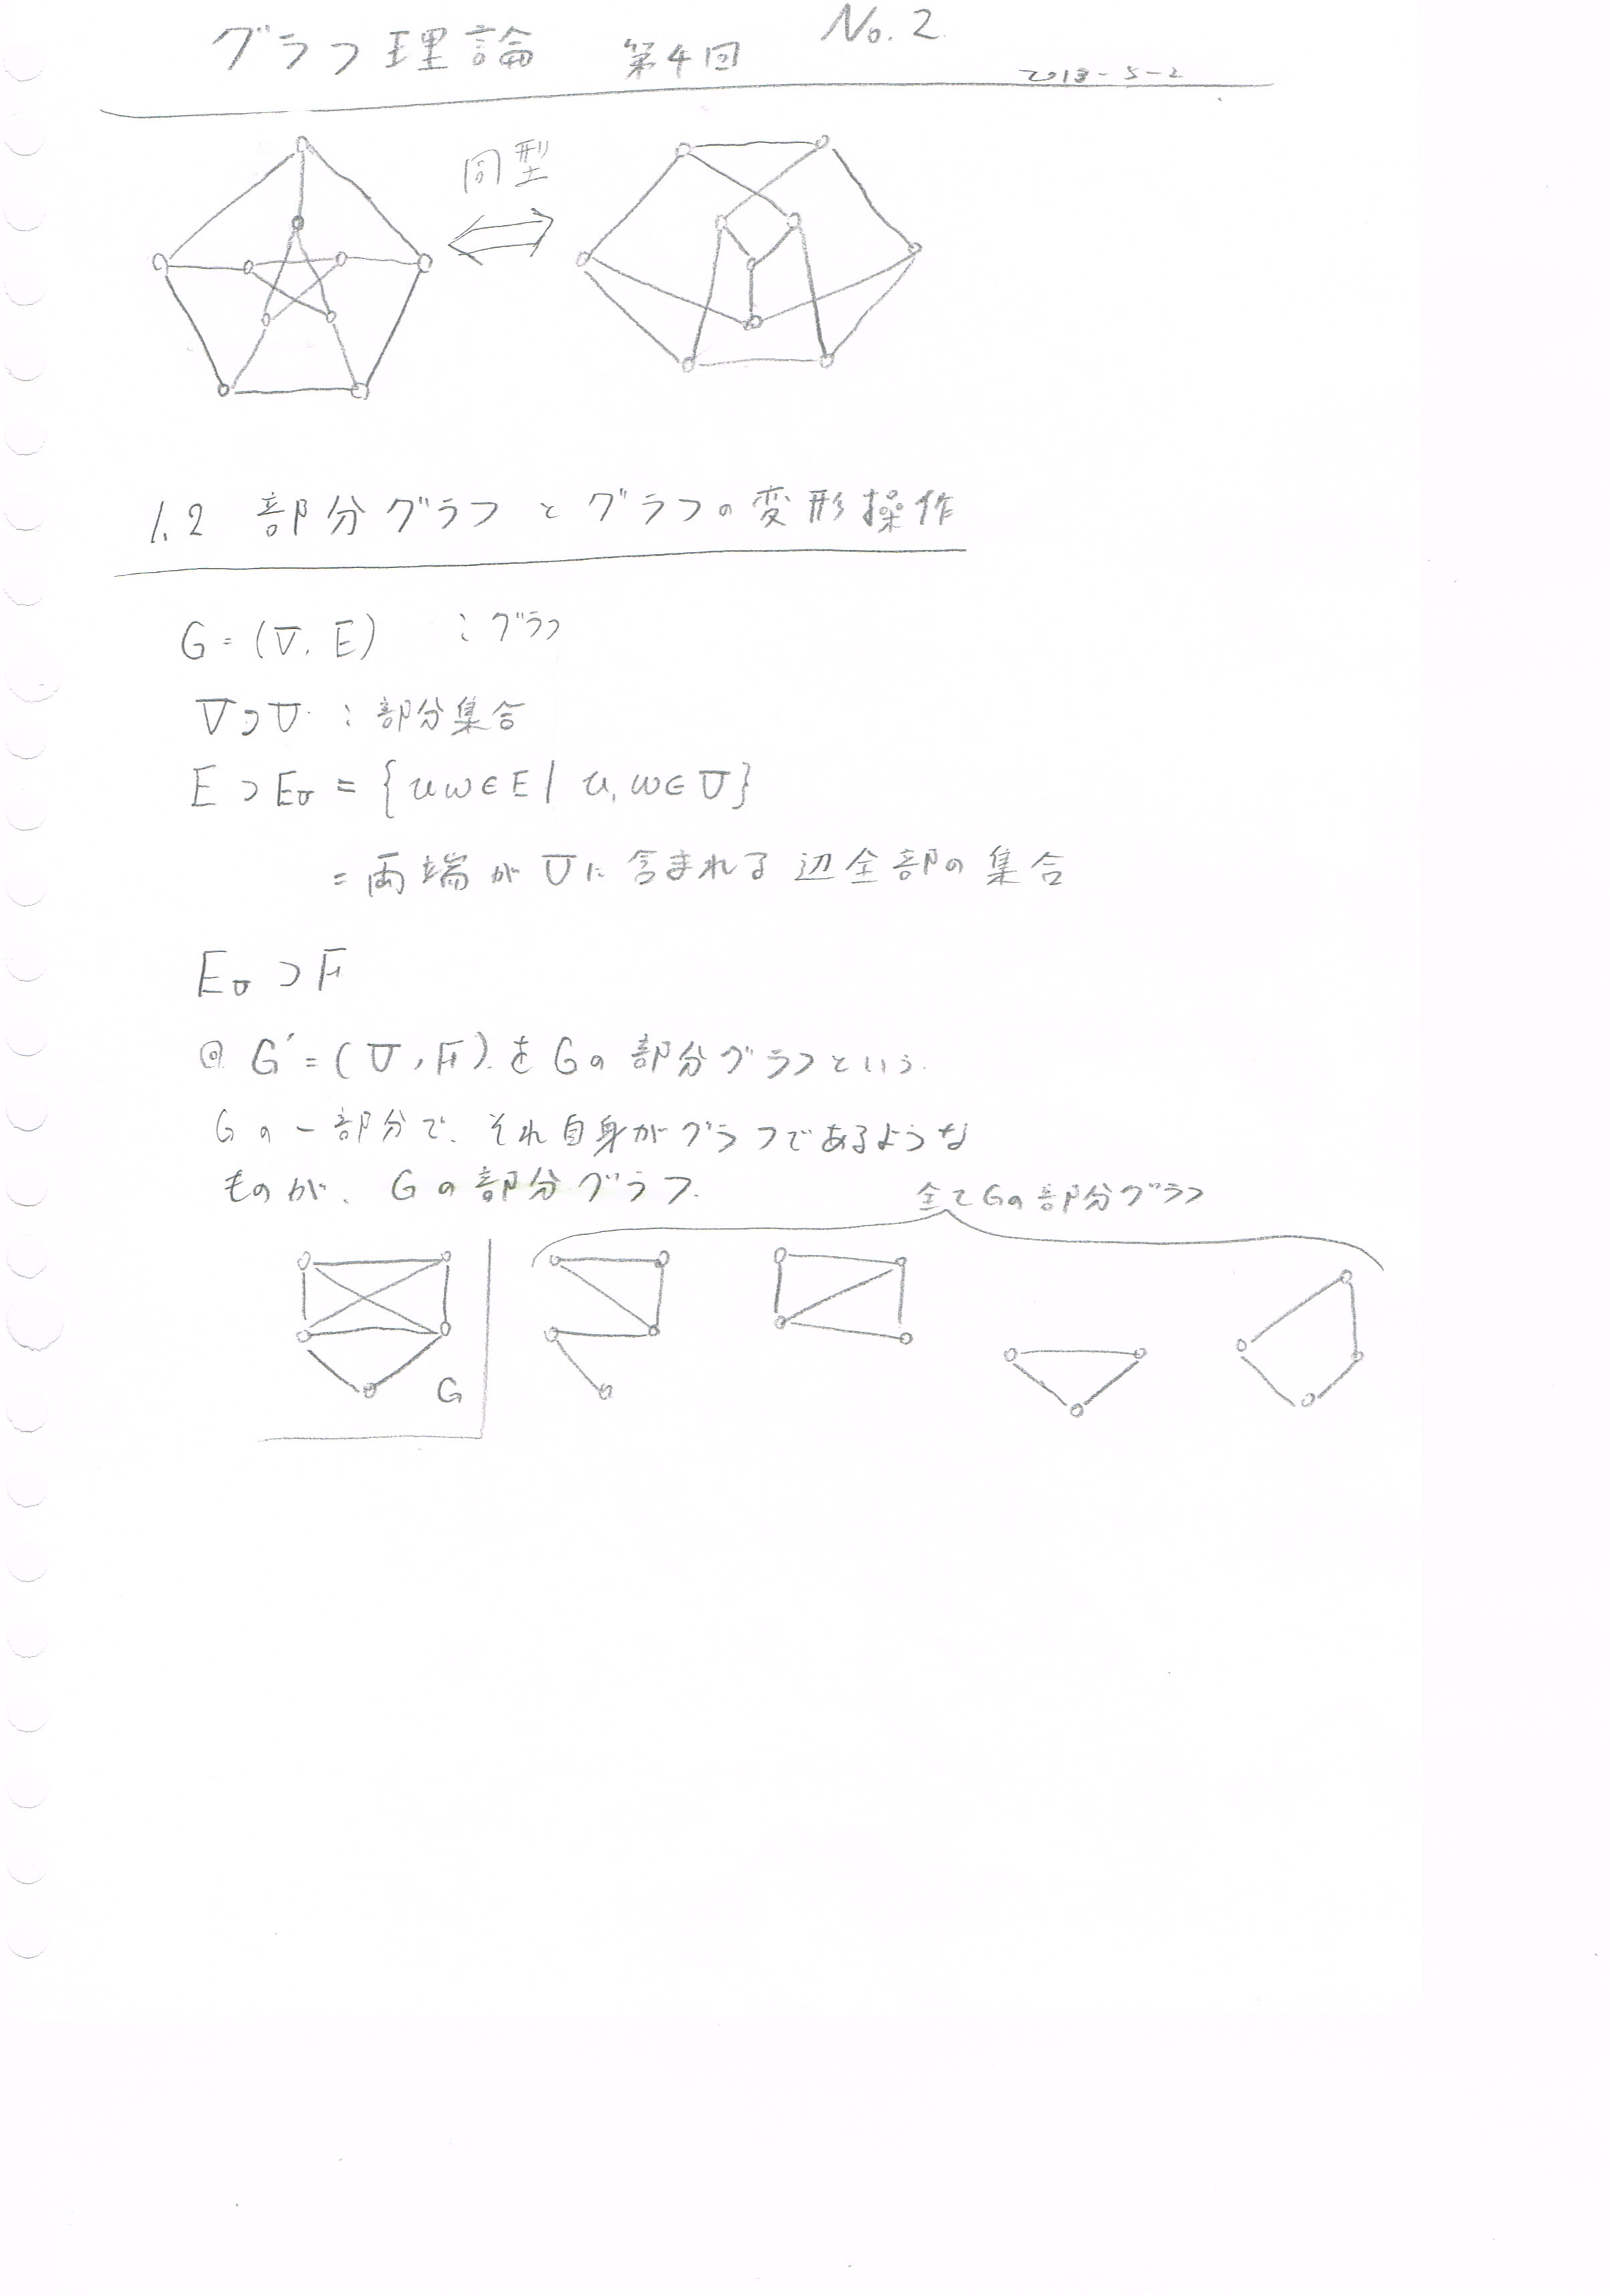 グラフ理論 第4回 No.2
2013-5-2
同型
1.2 部分グラフとグラフの変形操作
G=(V, E) :グラフ
V⊃U :部分集合
E⊃E_U = {uw∈E | u, w∈U}
=両端がUに含まれる辺全部の集合
E_U⊃F
◎ G'=(U, F)をGの部分グラフという.
Gの一部分で、それ自身がグラフであるような
ものが、Gの部分グラフ.
全てGの部分グラフ
G